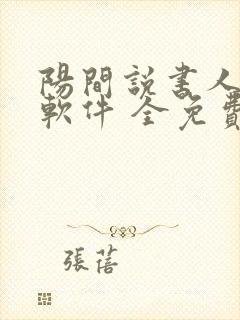 陽間說書人
軟件 全免費
張蓓